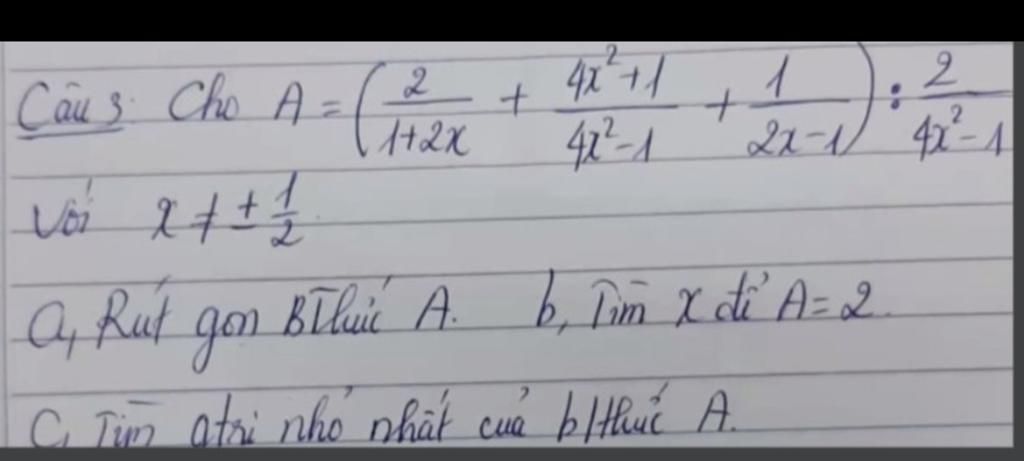 Câu 3: Cho A = (2/(1+2x) + (4x²+1)/(4x²-1) + 1/(2x-1)) : 2/(4x²-1)
Với x ≠ ± 1/2
a, Rút gọn BThức A. b, Tìm x để A = 2.
C, Tìm gtrị nhỏ nhất của b/thức A.